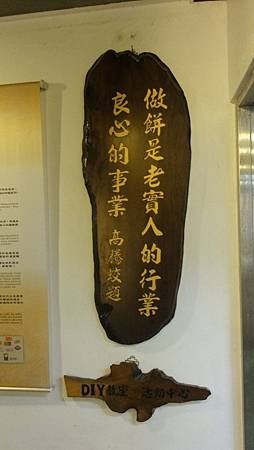 做餅是老實人的行業
良心的事業
高騰蛟題
DIY教室 活動中心